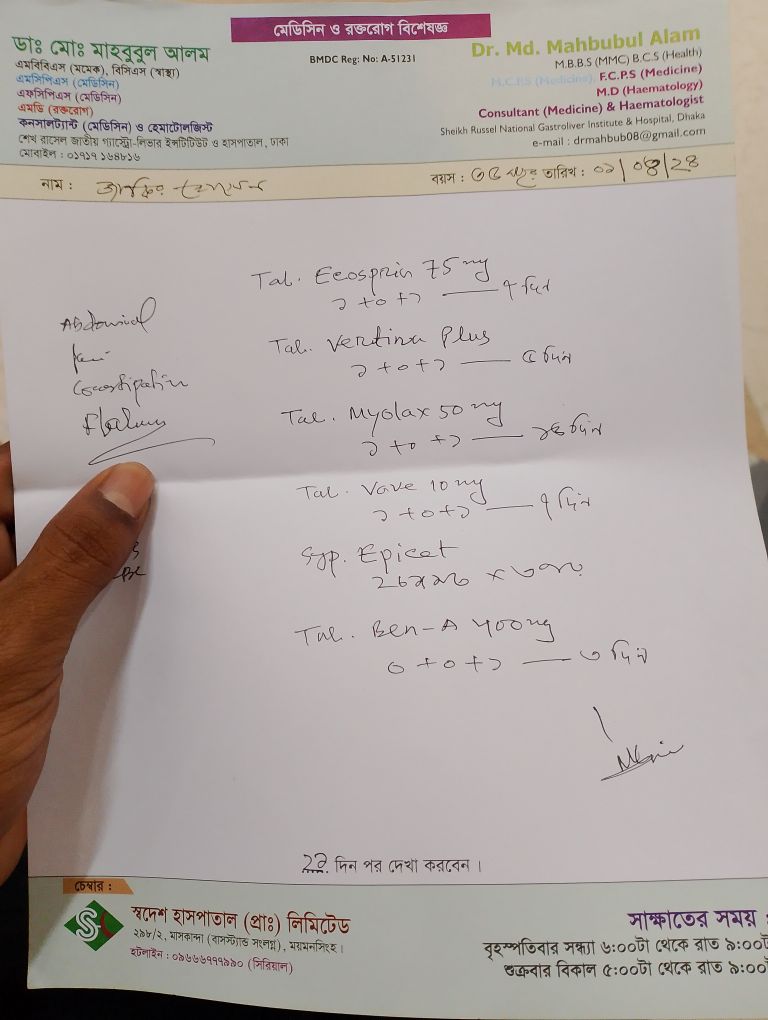 মেডিসিন ও রক্তরোগ বিশেষজ্ঞ
ডাঃ মোঃ মাহবুবুল আলম
এমবিবিএস (মমেক), বিসিএস (স্বাস্থ্য)
এমসিপিএস (মেডিসিন)
এফসিপিএস (মেডিসিন)
এমডি (রক্তরোগ)
কনসালট্যান্ট (মেডিসিন) ও হেমাটোলজিস্ট
শেখ রাসেল জাতীয় গ্যাস্ট্রো-লিভার ইনস্টিটিউট ও হাসপাতাল, ঢাকা
মোবাইল : ০১৭১৭ ১৬৪৮১৬
BMDC Reg: No: A-51231
Dr. Md. Mahbubul Alam
M.B.B.S (MMC) B.C.S (Health)
M.C.P.S (Medicine), F.C.P.S (Medicine)
M.D (Haematology)
Consultant (Medicine) & Haematologist
Sheikh Russel National Gastroliver Institute & Hospital, Dhaka
e-mail : drmahbub08@gmail.com
নাম :
বয়স : ৩৫ তারিখ : ০১/০৪/২৪
Abdominal
Constipation
Tab. Ecosprin 75 mg
১+০+১ — ৭ দিন
Tab. Vertina Plus
১+০+১ — ৫ দিন
Tab. Myolax 50 mg
১+০+১ — দিন
Tab. Vave 10 mg
১+০+১ — ৭ দিন
Syp. Epicet
Tab. Ben-A 400 mg
০+০+১ — ৩ দিন
দিন পর দেখা করবেন।
চেম্বার :
স্বদেশ হাসপাতাল (প্রাঃ) লিমিটেড
২৯৮/২, মাসকান্দা (বাসস্ট্যান্ড সংলগ্ন), ময়মনসিংহ।
হটলাইন : ০৯৬৬৬৭৭৭৯৯০ (সিরিয়াল)
সাক্ষাতের সময় :
বৃহস্পতিবার সন্ধ্যা ৬:০০টা থেকে রাত ৯:০০টা
শুক্রবার বিকাল ৫:০০টা থেকে রাত ৯:০০টা